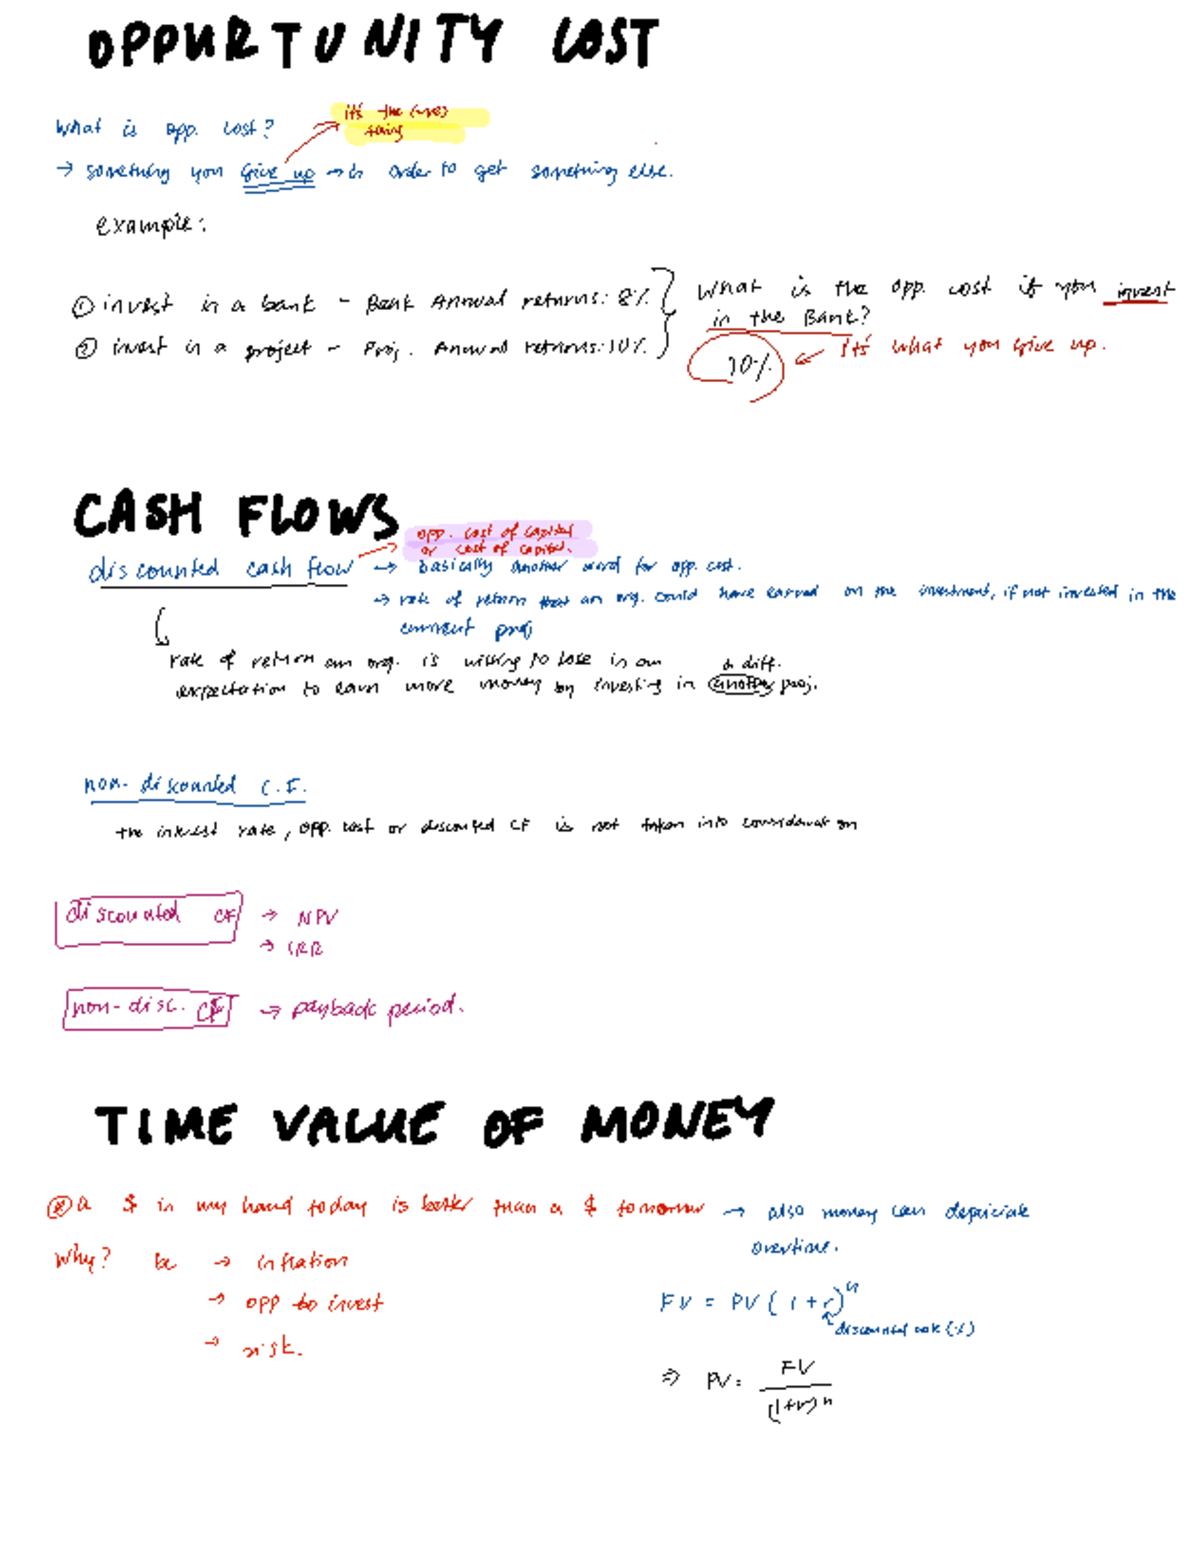 OPPURTUNITY COST
it's the (-ve)
thing
What is opp. cost?
→ something you give up → in order to get something else.
example:
① invest in a bank - Bank Annual returns: 8%
② invest in a project - Proj. Annual returns: 10%
What is the opp. cost if you invest
in the Bank?
10% ← it's what you give up.
CASH FLOWS
opp. cost of capital
or cost of capital.
discounted cash flow → basically another word for opp. cost.
→ rate of return that an org. could have earned on the investment, if not invested in the
current proj
rate of return an org. is willing to lose in an
expectation to earn more money by investing in another proj.
a diff.
non-discounted C.F.
the interest rate, opp. cost or discounted CF is not taken into consideration
discounted CF → NPV
→ IRR
non-disc. CF → payback period.
TIME VALUE OF MONEY
a $ in my hand today is better than a $ tomorrow → also money can depriciate
overtime.
Why? bc → inflation
→ opp to invest
→ risk.
FV = PV (1+r)^n
discounted rate (%)
⇒ PV = FV / (1+r)^n